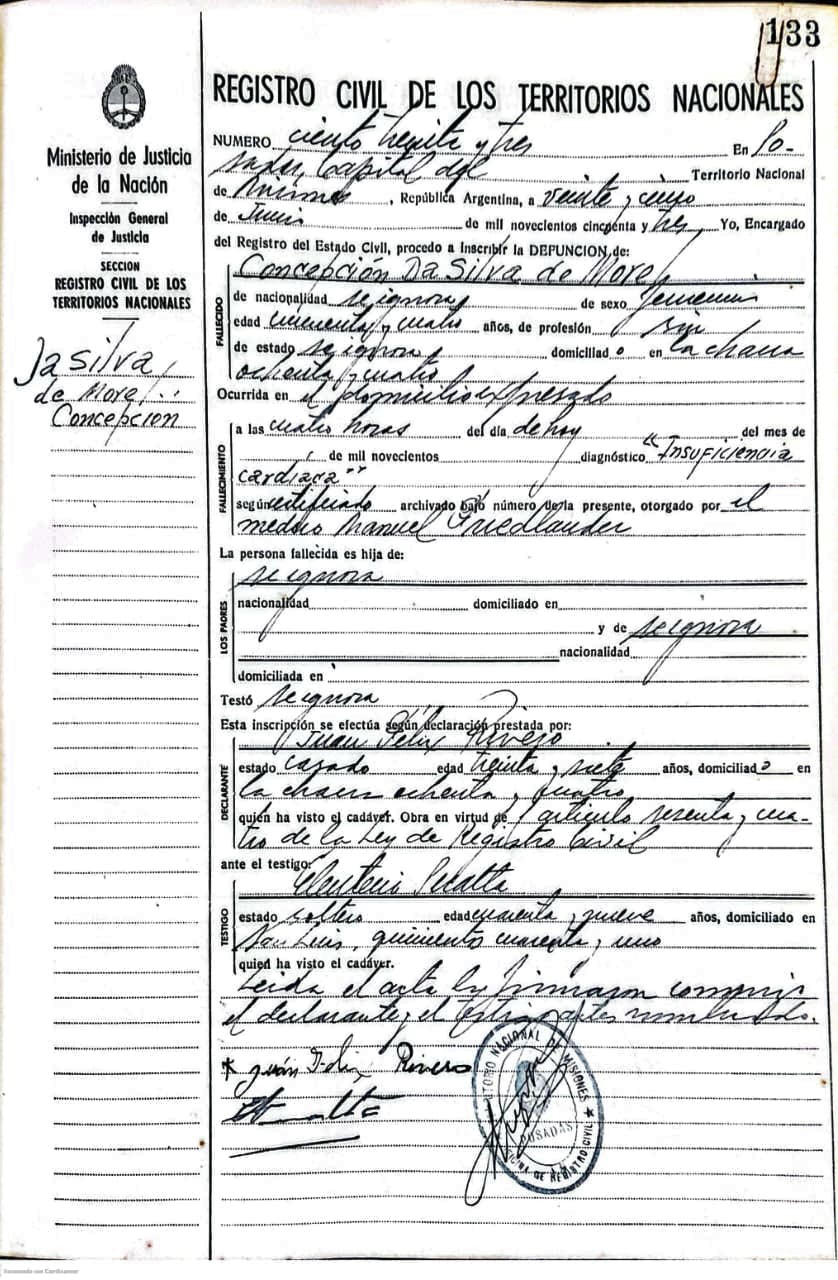 133
Ministerio de Justicia
de la Nación
Inspección General
de Justicia
SECCION
REGISTRO CIVIL DE LOS
TERRITORIOS NACIONALES
Da Silva
de Morel
Concepción
REGISTRO CIVIL DE LOS TERRITORIOS NACIONALES
NUMERO ciento treinta y tres En Po-
sadas, Capital del Territorio Nacional
de Misiones, República Argentina, a veinte y cinco
de Junio de mil novecientos cincuenta y tres Yo, Encargado
del Registro del Estado Civil, procedo a inscribir la DEFUNCION de:
FALLECIDO
Concepción Da Silva de Morel
de nacionalidad se ignora de sexo femenino
edad cincuenta y cuatro años, de profesión sin
de estado se ignora domiciliado en la chacra
ochenta y cuatro
Ocurrida en el domicilio expresado
FALLECIMIENTO
a las cuatro horas del día de hoy del mes de
de mil novecientos diagnóstico "Insuficiencia
cardíaca"
según certificado archivado bajo número de la presente, otorgado por el
médico Manuel Friedlander
La persona fallecida es hija de:
LOS PADRES
se ignora
nacionalidad domiciliado en
y de se ignora
nacionalidad
domiciliada en
Testó se ignora
Esta inscripción se efectúa según declaración prestada por:
DECLARANTE
Juan Félix Rivero
estado casado edad treinta y siete años, domiciliado en
la chacra ochenta y cuatro
quién ha visto el cadáver. Obra en virtud del artículo sesenta y cua-
tro de la Ley de Registro Civil
ante el testigo:
TESTIGO
Eleuterio Peralta
estado soltero edad cuarenta y nueve años, domiciliado en
San Luis, quinientos cuarenta y uno
quien ha visto el cadáver.
Leída el acta la firmaron conmigo
el declarante y el testigo antes nombrado.
Juán Felix Rivero
TERRITORIO NACIONAL DE MISIONES
POSADAS
OFICINA DE REGISTRO CIVIL
Escaneado con CamScanner